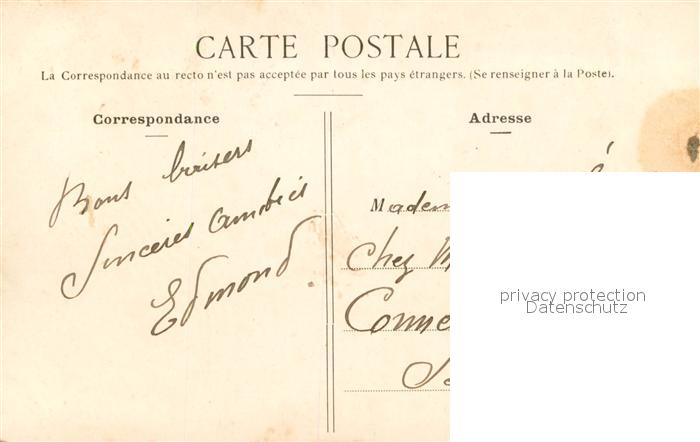 CARTE POSTALE
La Correspondance au recto n'est pas acceptée par tous les pays étrangers. (Se renseigner à la Poste).
Correspondance
Bons baisers
Sincères amitiés
Edmond.
Adresse
Madem
Chez M
privacy protection
Datenschutz